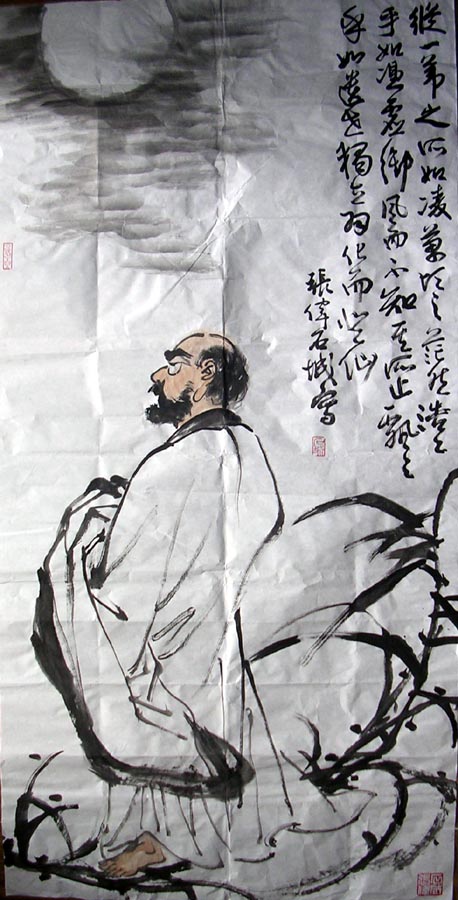 縱一葦之所如凌萬頃之茫然浩々
乎如馮虛御風而不知其所止飄々
乎如遺世獨立羽化而登仙
張偉石城寫